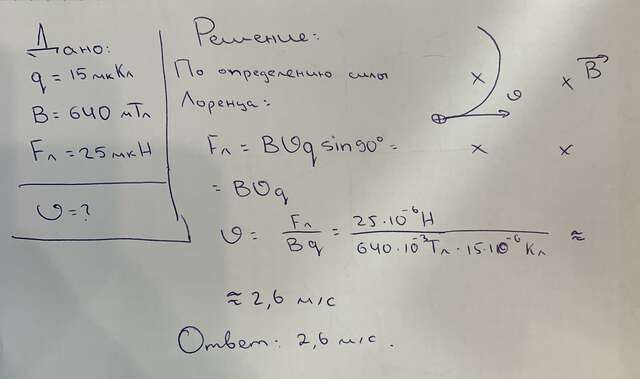 Дано:
q = 15 мкКл
B = 640 мТл
Fл = 25 мкН
υ = ?
Решение:
По определению силы
Лоренца:
Fл = Bυq sin90° =
= Bυq
υ = Fл / Bq = 25·10⁻⁶Н / 640·10⁻³Тл·15·10⁻⁶Кл ≈
≈ 2,6 м/с
Ответ: 2,6 м/с.
υ
× × B⃗
× ×